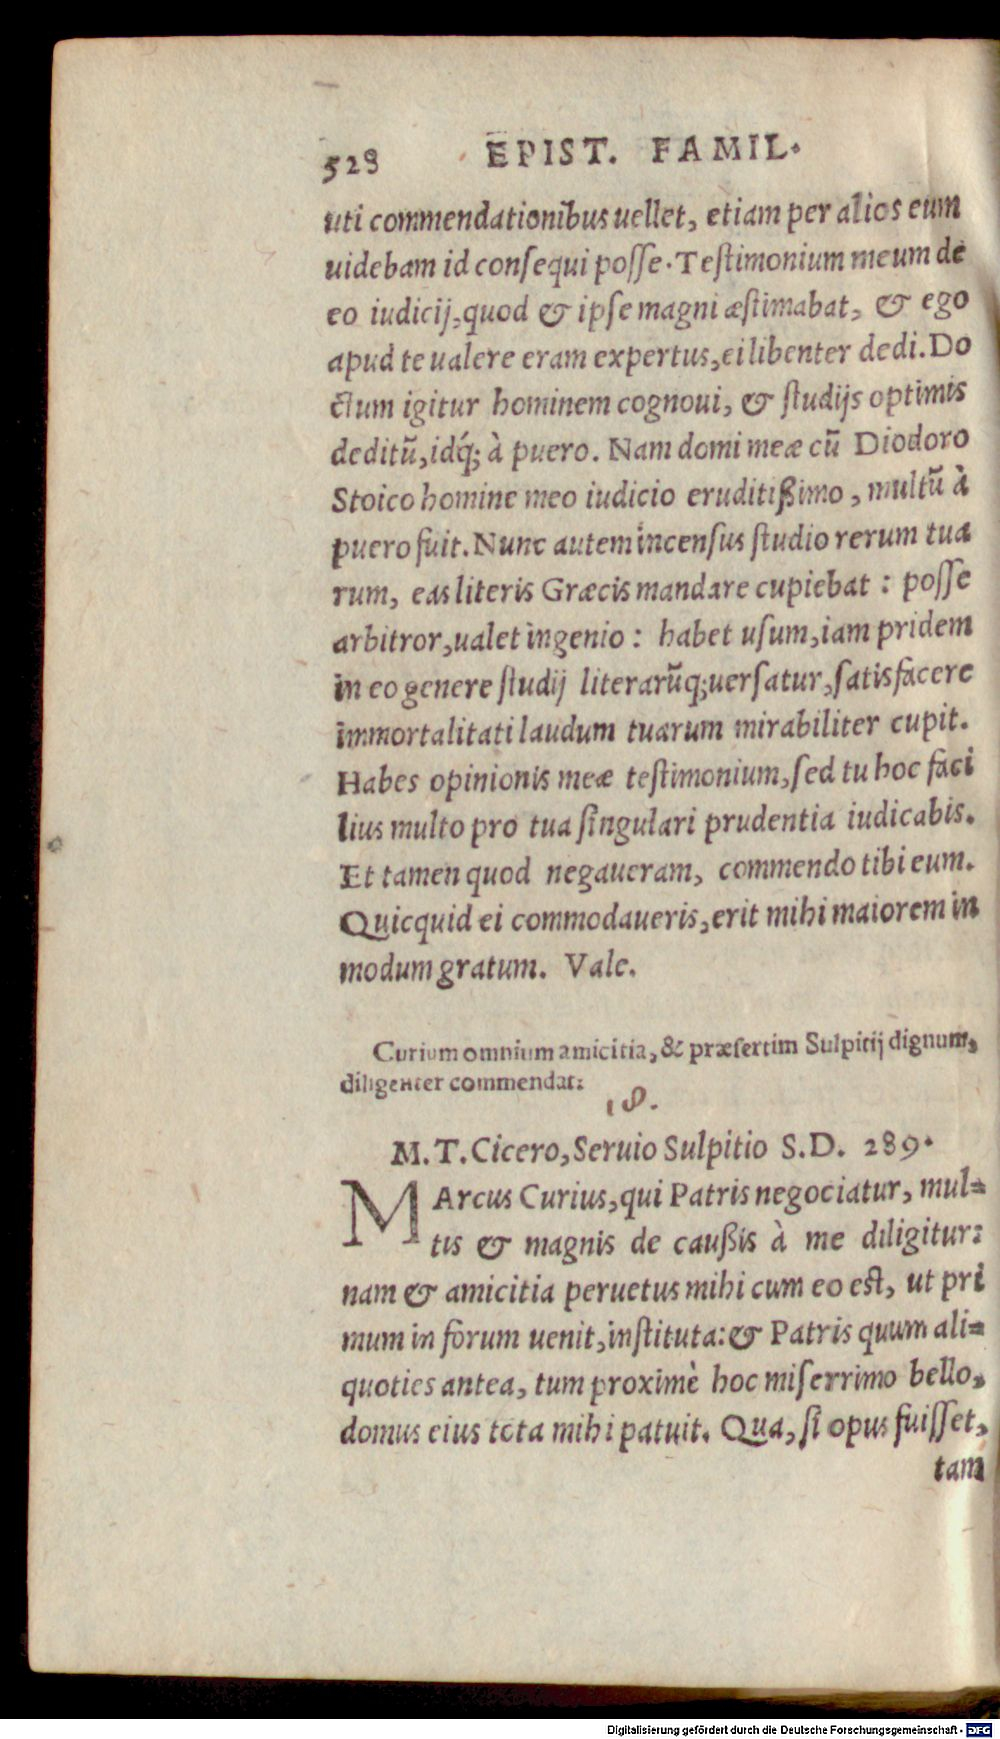 528 EPIST. FAMIL.
uti commendationibus uellet, etiam per alios eum
uidebam id consequi posse. Testimonium meum de
eo iudicij, quod & ipse magni æstimabat, & ego
apud te ualere eram expertus, ei libenter dedi. Do
ctum igitur hominem cognoui, & studijs optimis
deditū, idq́; à puero. Nam domi meæ cū Diodoro
Stoico homine meo iudicio eruditißimo, multū à
puero fuit. Nunc autem incensus studio rerum tua
rum, eas literis Græcis mandare cupiebat : posse
arbitror, ualet ingenio : habet usum, iam pridem
in eo genere studij literarūq; uersatur, satisfacere
immortalitati laudum tuarum mirabiliter cupit.
Habes opinionis meæ testimonium, sed tu hoc faci
lius multo pro tua singulari prudentia iudicabis.
Et tamen quod negaueram, commendo tibi eum.
Quicquid ei commodaueris, erit mihi maiorem in
modum gratum. Vale.
Curium omnium amicitia, & præsertim Sulpitij dignum,
diligenter commendat:
18.
M. T. Cicero, Seruio Sulpitio S. D. 289.
MArcus Curius, qui Patris negociatur, mul=
tis & magnis de caußis à me diligitur:
nam & amicitia peruetus mihi cum eo est, ut pri
mum in forum uenit, instituta: & Patris quum ali=
quoties antea, tum proximè hoc miserrimo bello,
domus eius tota mihi patuit. Qua, si opus fuisset,
tam
Digitalisierung gefördert durch die Deutsche Forschungsgemeinschaft - DFG